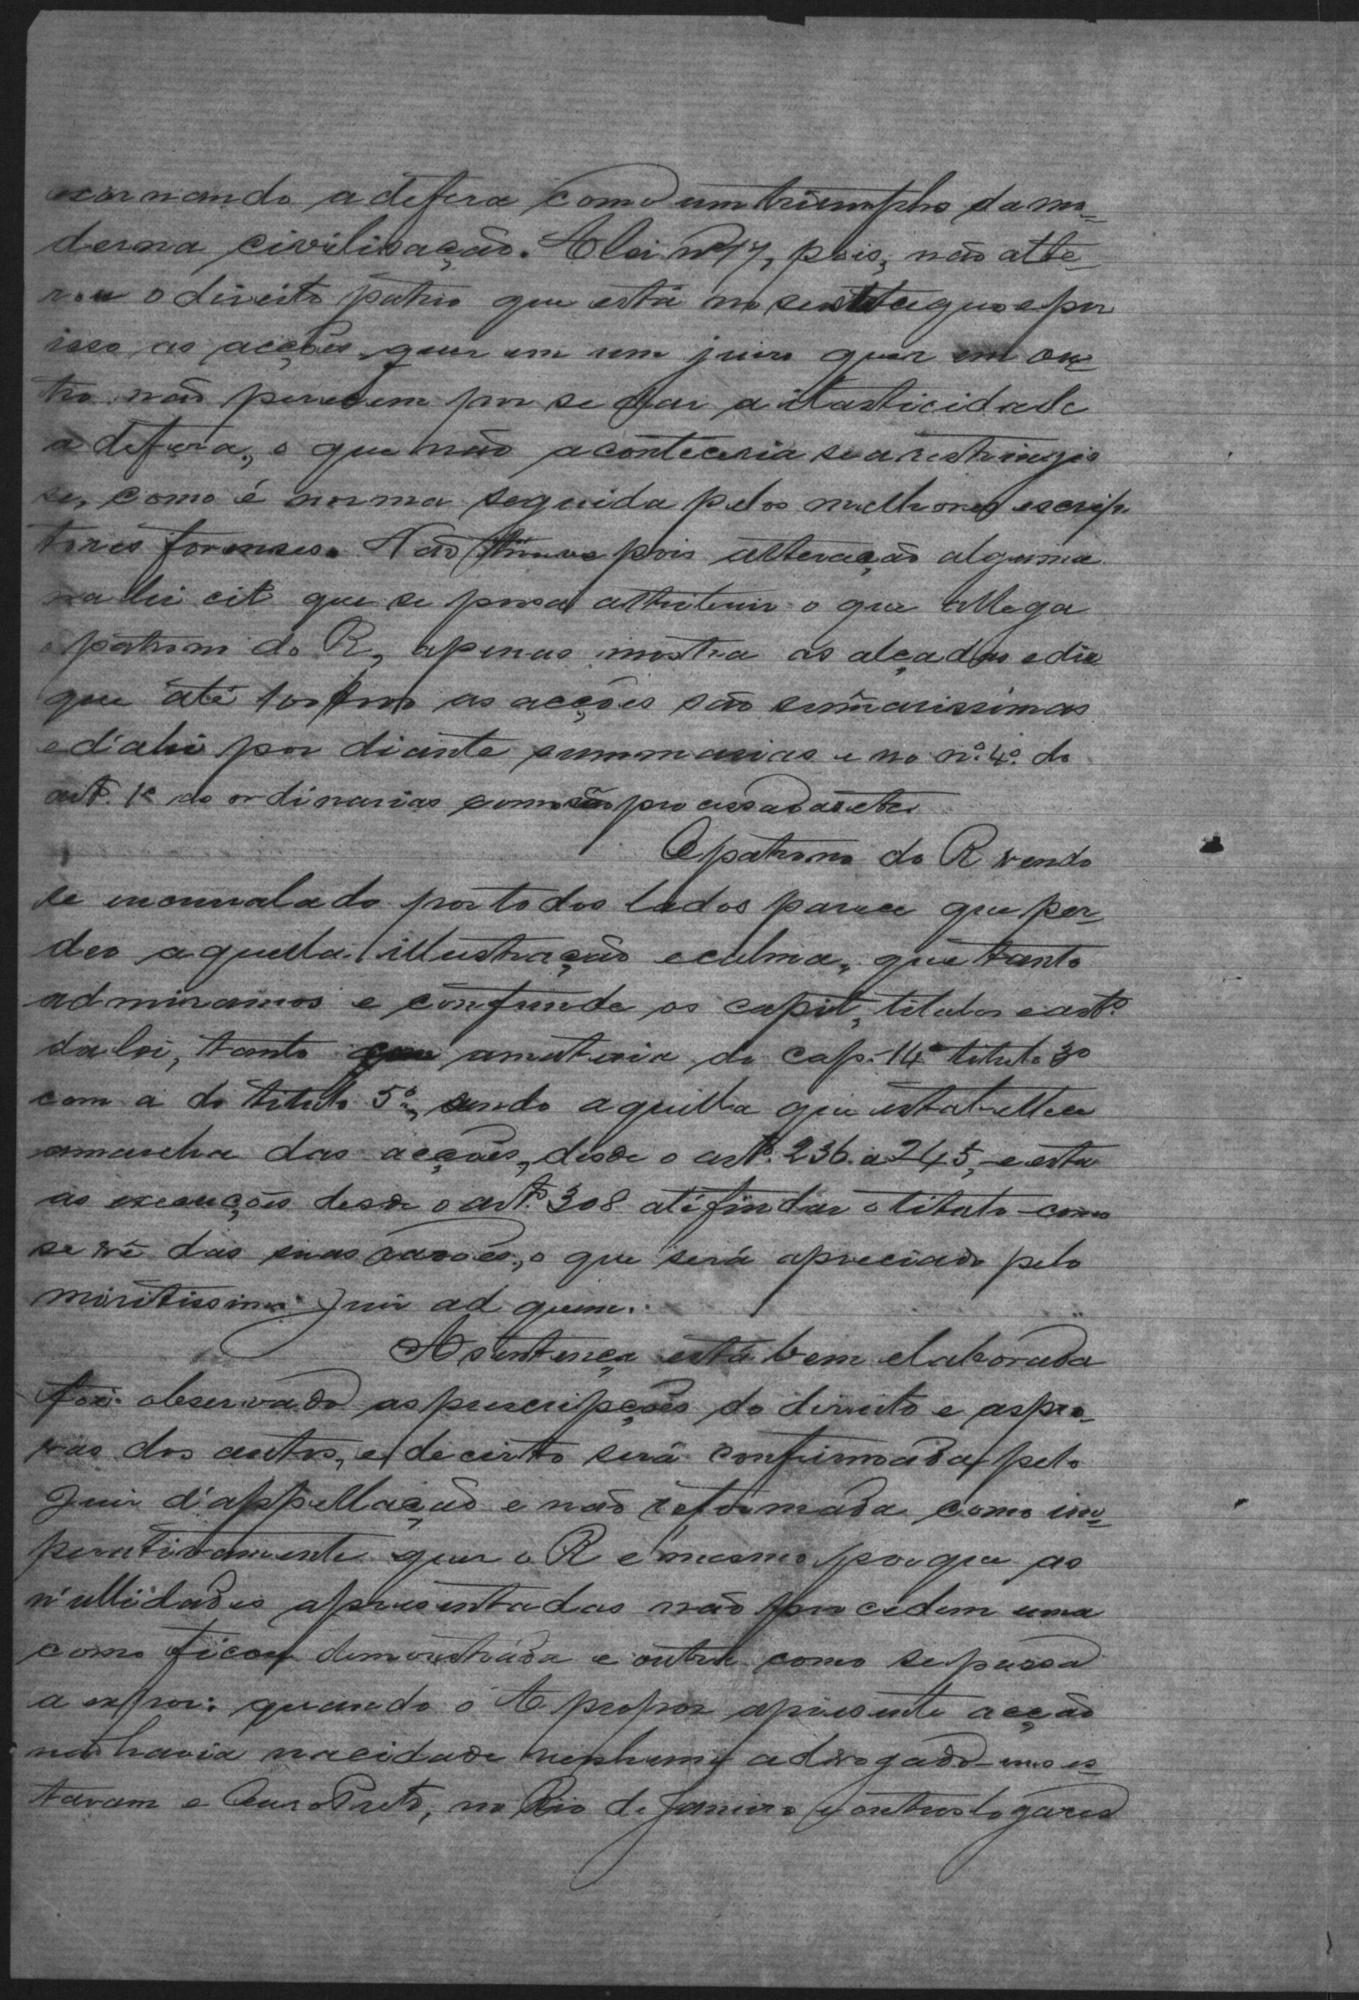 a defeza como um triumpho da mo=
derna civilisação. A lei nº 17, pois, não alte=
rou o direito patrio que está no statuquo e por
isso as acções, quer em um juizo quer em ou=
tro não perecem por se dar a elasticidade
a defeza, o que não aconteceria se a restringis
se, como é norma seguida pelos melhores escrip
tores forenses. Não houve pois alteração alguma
na lei cit que se possa attribuir o que allega
o patrono do R, apenas mostra as alçadas e diz
que até as acções são summarissimas
e d'ahi por diante summarias e no nº 4º do
artº. 1º as ordinarias como são processadas etc.
O patrono do R vendo
se encurralado por todos lados parece que per
deo aquella illustração e calma, que tanto
admiramos e confunde os capit, titulos e artº.
da lei, tanto que a materia do cap. 14º titulo 3º
com a do titulo 5º, sendo aquella que estabellece
a marcha das acções, desde o artº. 236 a 245, e esta
as execuções desde o artº. 308 até findar o titulo como
se vê das suas razões, o que será apreciado pelo
meritissimo Juiz ad quem.
A sentença está bem elaborada
foi observado as prescripções do direito e as pro=
vas dos autos, e de certo será confirmada pelo
Juiz d'appellação e não reformada como im=
perativamente quer o R e mesmo porque as
nullidades apresentadas não procedem uma
como ficou demonstrada e outra como se passa
a expor: quando o A propoz a presente acção
não havia na cidade nenhum advogado es=
tavam e Ouro Preto, no Rio de Janeiro e outros logares